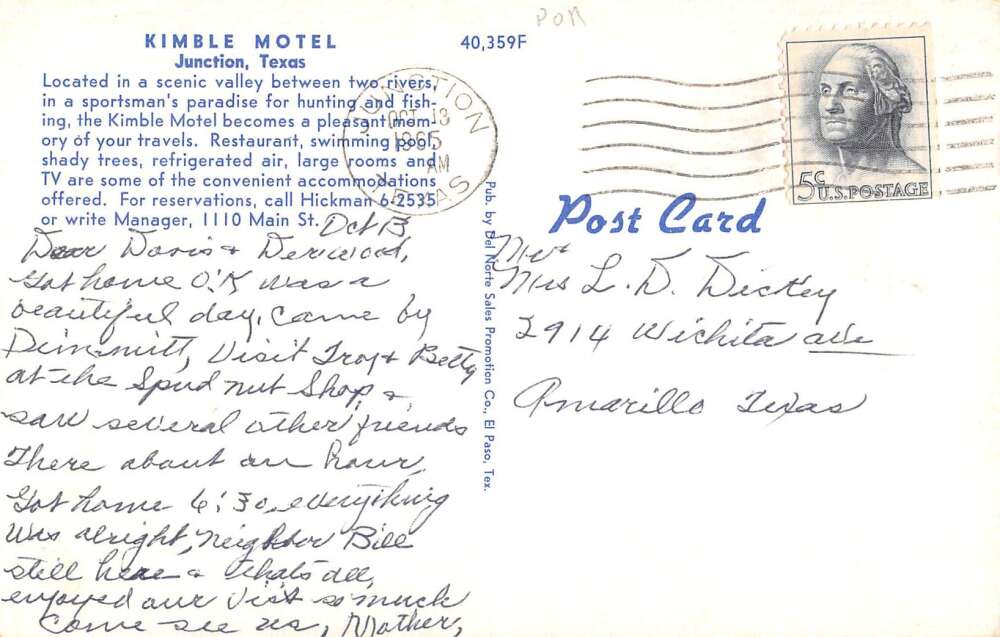 PON
KIMBLE MOTEL
Junction, Texas
Located in a scenic valley between two rivers,
in a sportsman's paradise for hunting and fish-
ing, the Kimble Motel becomes a pleasant mem-
ory of your travels. Restaurant, swimming pool,
shady trees, refrigerated air, large rooms and
TV are some of the convenient accommodations
offered. For reservations, call Hickman 6-2535
or write Manager, 1110 Main St.
40,359F
JUNCTION
OCT 13
1965
AM
TEXAS
5¢ U.S. POSTAGE
Post Card
Pub. by Del Norte Sales Promotion Co., El Paso, Tex.
Oct 13
Dear Doris & Derwood,
Got home O.K was a
beautiful day, came by
Dimmitt, Visit Troy & Betty
at the Spud nut Shop &
saw several other friends
There about an hour,
Got home 6:30, everything
was alright, neighbor Bill
still here & thats all,
enjoyed our visit so much
Come see us, Mother,
Mr &
Mrs L. D. Dickey
2914 Wichita ave
Amarillo Texas